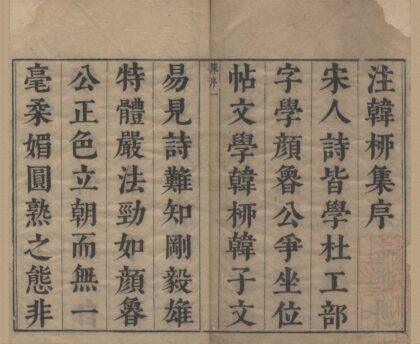 注韓栁集序
宋人詩皆學杜工部
字學顏魯公爭坐位
帖文學韓栁韓子文
序一
易見詩難知剛毅雄
特體嚴法勁如顏魯
公正色立朝而無一
毫柔媚圓熟之態非